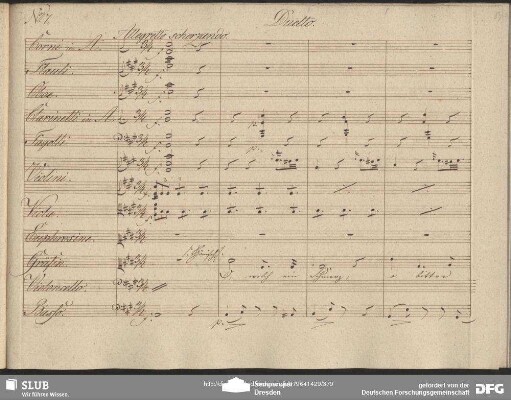 No 7.
Duetto.
Allegretto scherzando.
Corni in A.
Flauti.
Oboe.
Clarinetti in A.
Fagotti
Violini.
Viola.
Gräfin.
O welch ein
bittre
Violoncello.
Basso.
SLUB
Wir führen Wissen.
Dresden
gefördert von der
Deutschen Forschungsgemeinschaft
DFG